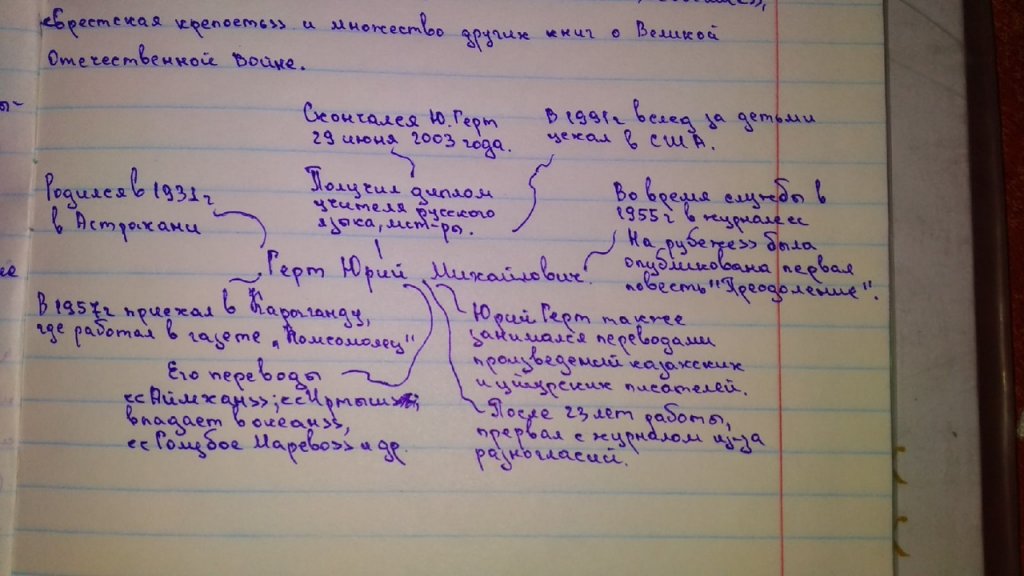 «Брестская крепость» и множество других книг о Великой
Отечественной Войне.
Скончался Ю. Герт
29 июня 2003 года.
В 1991г вслед за детьми
уехал в США.
Родился в 1931г
в Астрахани
Получил диплом
учителя русского
языка, лит-ры.
Во время службы в
1955г в журнале «
На рубеже» была
опубликована первая
повесть "Преодоление".
Герт Юрий Михайлович.
В 1957г приехал в Караганду,
где работал в газете „Комсомолец"
Юрий Герт также
занимался переводами
произведений казахских
и уйгурских писателей.
Его переводы
«Айлхан»; «Иртыш
впадает в океан»,
«Голубое Марево» и др.
После 23 лет работы,
прервал с журналом из-за
разногласий.